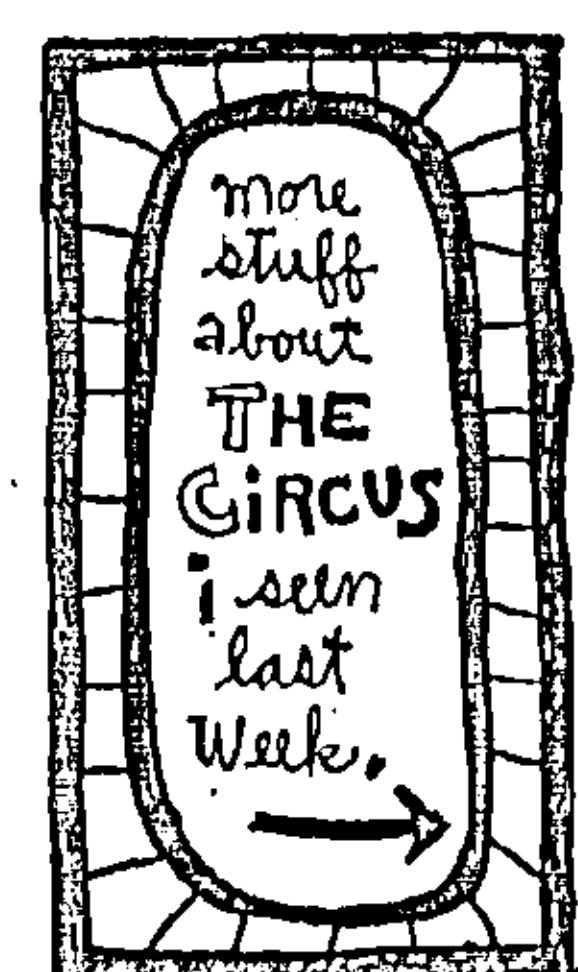 more
stuff
about
THE
CiRCUS
i seen
last
Week.